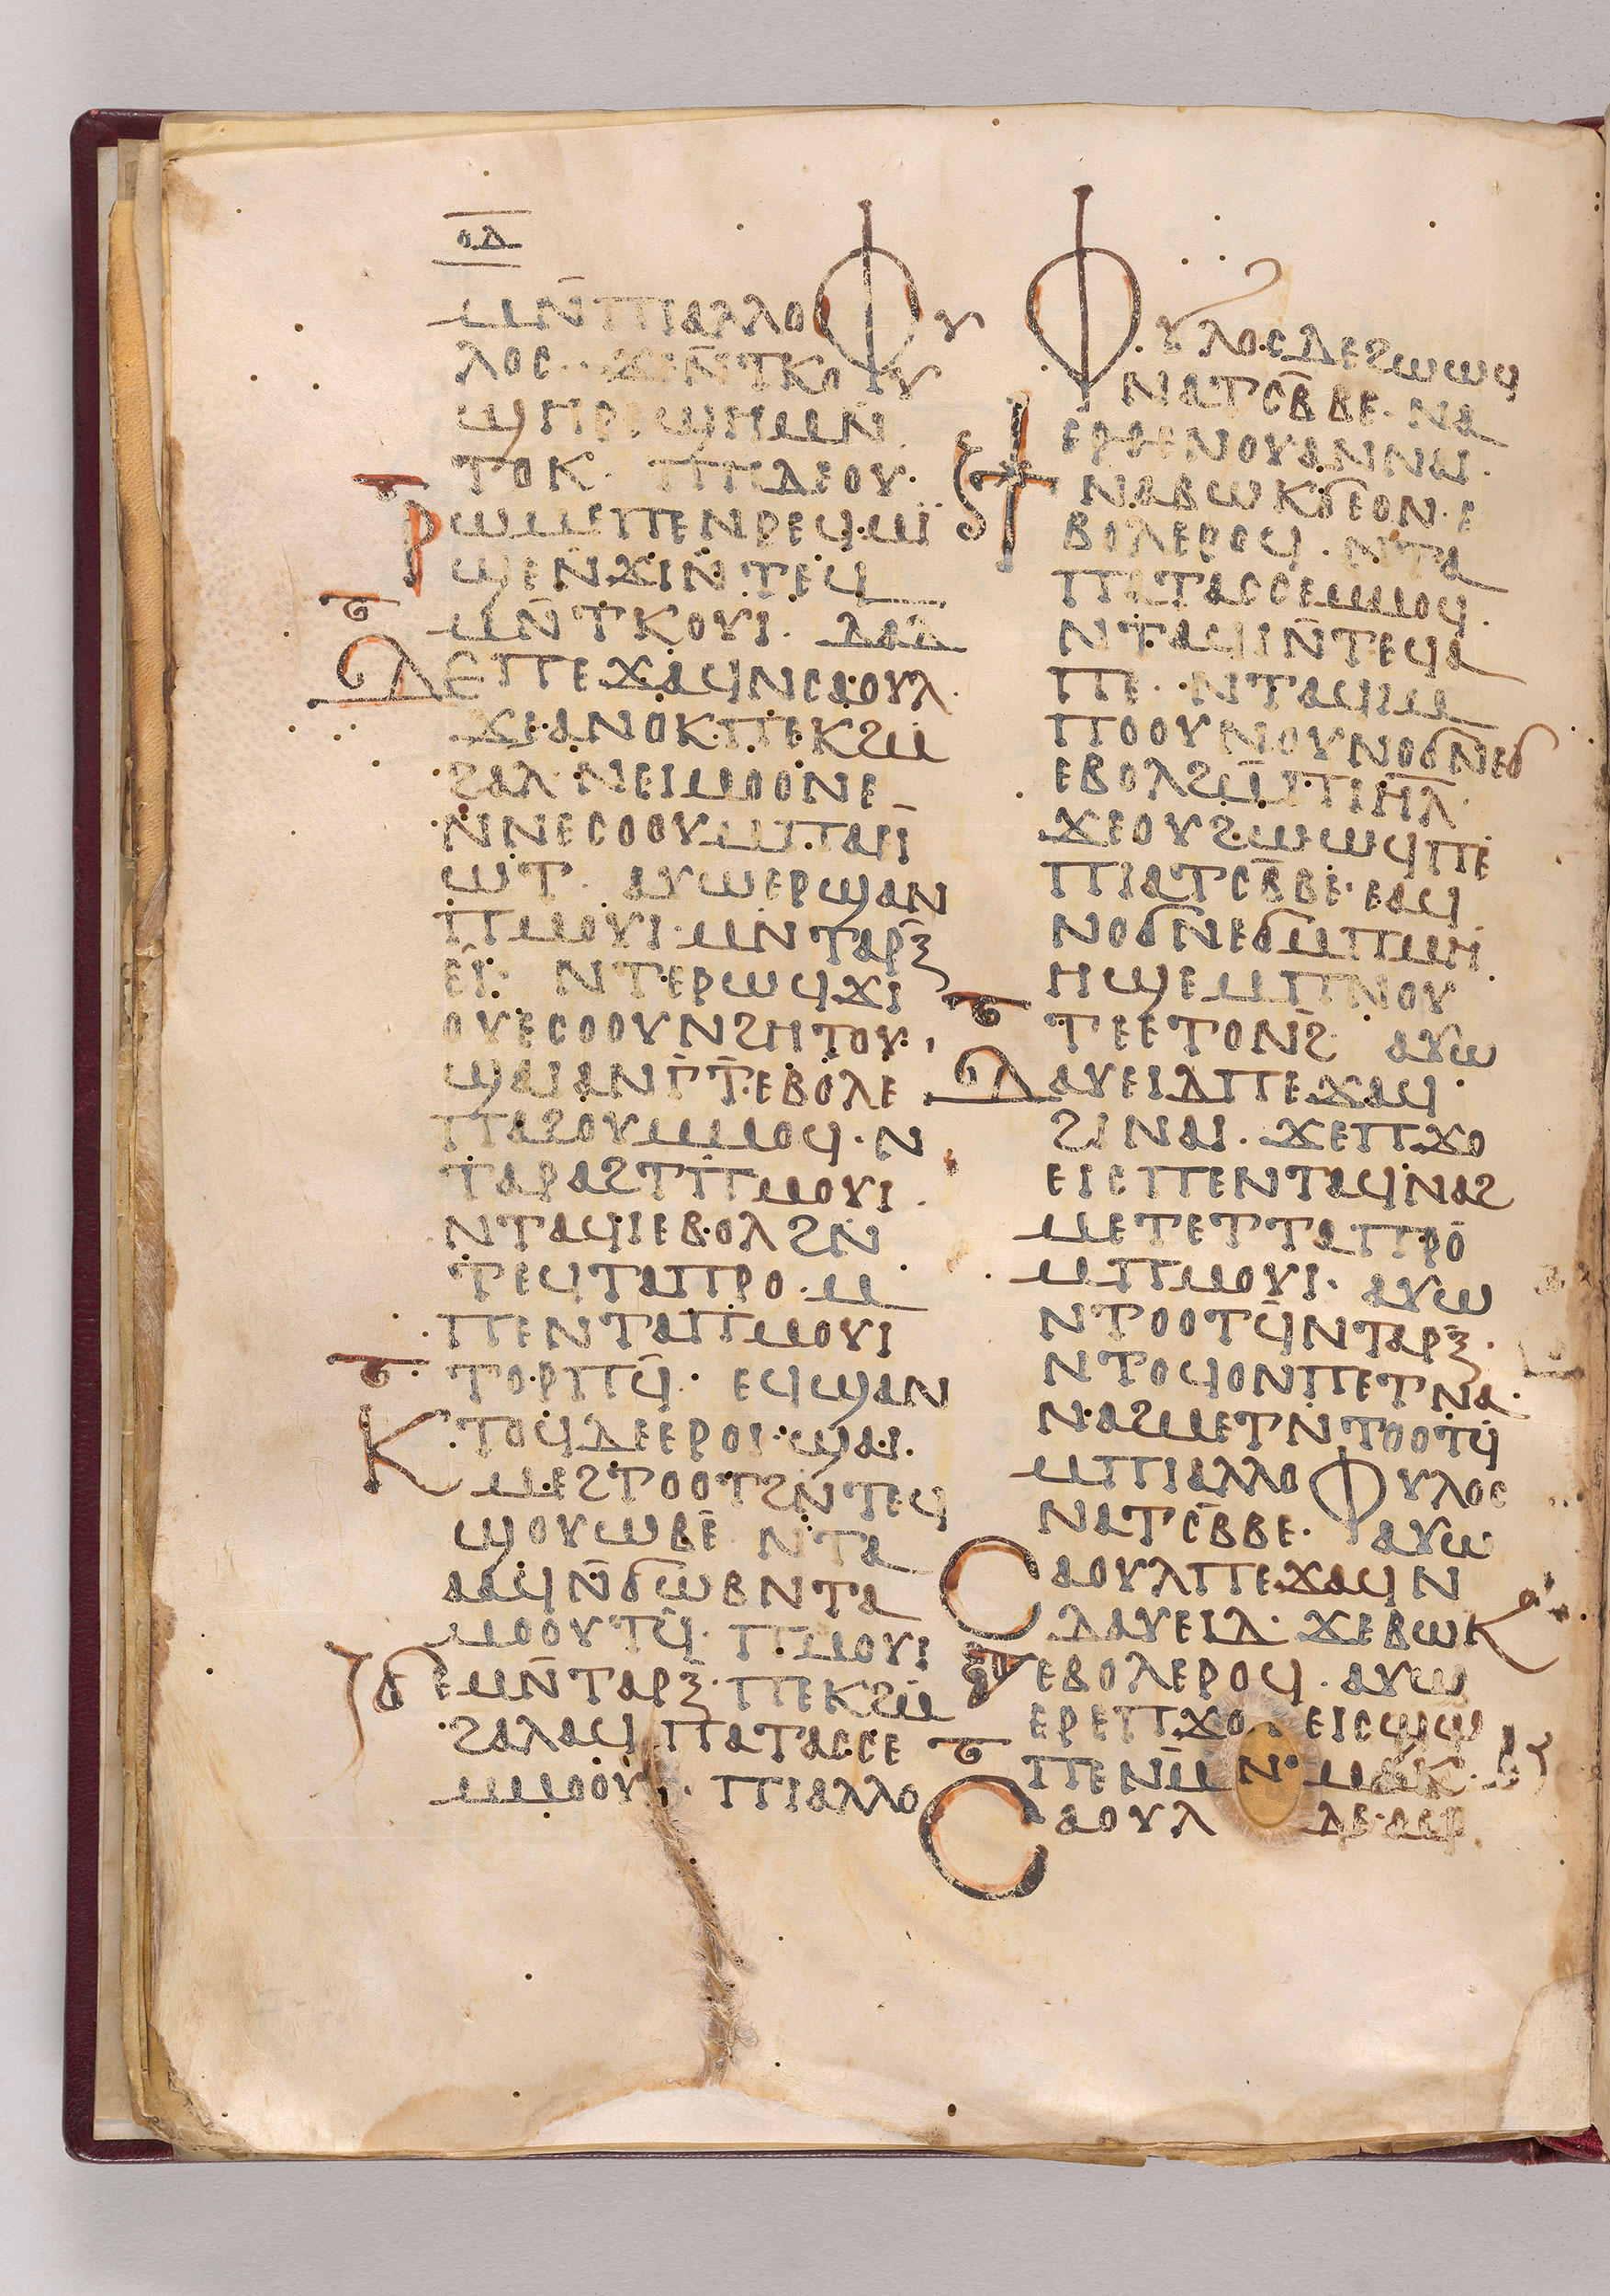 ⲟⲇ
ⲙⲛ̄ⲡⲓⲁⲗⲗⲟⲫⲩ
ⲗⲟⲥ· ϫⲉⲛ̄ⲧⲕⲟⲩ
ϣⲏⲣⲉϣⲏⲙⲛ̄
ⲧⲟⲕ· ⲡⲏⲇⲉⲟⲩ·
ⲣⲱⲙⲉⲡⲉⲛⲣⲉϥⲙⲓ
ϣⲉⲛ̄ϫⲓⲛ̄ⲧⲉϥ
ⲙⲛ̄ⲧⲕⲟⲩⲓ· ⲇⲁⲇ
ⲇⲉⲡⲉϫⲁϥⲛⲥⲁⲟⲩⲗ·
ϫⲉⲁⲛⲟⲕⲡⲉⲕϩⲙ̄
ϩⲁⲗ· ⲛⲉⲓⲙⲟⲟⲛⲉ
ⲛⲛⲉⲥⲟⲟⲩⲙⲡⲁⲓ̄
ⲱⲧ· ⲁⲩⲱⲉⲣϣⲁⲛ
ⲡⲙⲟⲩⲓ·ⲙⲛⲧⲁⲣⲝ̄
ⲉⲓ̄· ⲛⲧⲉⲣⲱϥϫⲓ
ⲟⲩⲉⲥⲟⲟⲩⲛϩⲏⲧⲟⲩ·
ϣⲁⲓⲁⲛⲓ̄ⲧ̄·ⲉⲃⲟⲗⲉ
ⲡⲁϩⲟⲩⲙⲙⲟϥ·ⲛ
ⲧⲁⲣⲁϩⲧⲡ̄ⲙⲟⲩⲓ·
ⲛⲧⲁϥⲓⲉⲃⲟⲗϩⲛ̄
ⲧⲉϥⲧⲁⲡⲣⲟ·ⲙ
ⲡⲉⲛⲧⲁⲡⲙⲟⲩⲓ
ⲧⲟⲣⲡϥ̄· ⲉϥϣⲁⲛ
ⲕⲧⲟϥⲇⲉⲉⲣⲟⲓ·ϣⲁⲓ·
ⲙⲉϩⲧⲟⲟⲧϩⲛ̄ⲧⲉϥ
ϣⲟⲩⲱⲃⲉ̄ ⲛⲧⲁ
ⲁⲁϥⲛ̄ϭⲱⲃⲛⲧⲁ
ⲙⲟⲟⲩⲧϥ̄· ⲡⲙⲟⲩⲓ
ϭⲉⲙⲛ̄ⲧⲁⲣⲝ̄·ⲡⲉⲕϩⲙ̄
ϩⲁⲗⲁϥⲡⲁⲧⲁⲥⲥⲉ
ⲙⲙⲟⲟⲩ· ⲡⲓⲁⲗⲗⲟ
ⲫⲩⲗⲟⲥⲇⲉϩⲱⲱϥ
ⲛⲁⲧⲥⲃ̄ⲃⲉ·ⲛⲁ
ⲉⲣⲑⲉⲛⲟⲩⲁⲛⲛⲁⲓ·
ϯⲛⲁⲃⲱⲕϭⲉⲟⲛ·ⲉ
ⲃⲟⲗⲉⲣⲟϥ·ⲛⲧⲁ
ⲡⲁⲧⲁⲥⲥⲉⲙⲙⲟϥ·
ⲛⲧⲁϥⲓⲛ̄ⲧⲉϥⲁ
ⲡⲉ· ⲛⲧⲁϥⲓⲙ
ⲡⲟⲟⲩⲛⲟⲩⲛⲟϭⲛⲉϭ
ⲉⲃⲟⲗϩⲙ̄ⲡⲓⲏ̄ⲗ̄·
ϫⲉⲟⲩϩⲱⲱϥⲡⲉ
ⲡⲓⲁⲧⲥⲃ̄ⲃⲉ·ⲉⲁϥ
ⲛⲟϭⲛⲉϭⲙⲡⲙⲏ
ⲏϣⲉⲙⲡⲛⲟⲩ
ⲧⲉⲉⲧⲟⲛϩ̄ ⲁⲩⲱ
ⲇⲁⲩⲉⲓⲇⲡⲉϫⲁϥ·
ϩⲓⲛⲁⲓ· ϫⲉⲡϫⲟ
ⲉⲓⲥⲡⲉⲛⲧⲁϥⲛⲁϩ
ⲙⲉⲧⲉⲧⲧⲁⲡⲣⲟ
ⲙⲡⲙⲟⲩⲓ· ⲁⲩⲱ
ⲛⲧⲟⲟⲧϥ̄ⲛⲧⲁⲣⲝ̄·
ⲛⲧⲟϥⲟⲛⲡⲉⲧⲛⲁ·
ⲛⲁϩⲙⲉⲧⲛⲧⲟⲟⲧϥ
ⲙⲡⲓⲁⲗⲗⲟⲫⲩⲗⲟⲥ
ⲛⲁⲧⲥ̄ⲃⲃⲉ· ⲁⲩⲱ
ⲥⲁⲟⲩⲗⲡⲉϫⲁϥⲛ
ⲇⲁⲩⲉⲓⲇ· ϫⲉⲃⲱⲕ
ⲉⲃⲟⲗⲉⲣⲟϥ·ⲁⲩⲱ
ⲉⲣⲉⲡϫⲟⲉⲓⲥϣⲱ
ⲡⲉⲛⲙ̄ⲙⲁⲕ·
ⲥⲁⲟⲩⲗ ⲇⲉ